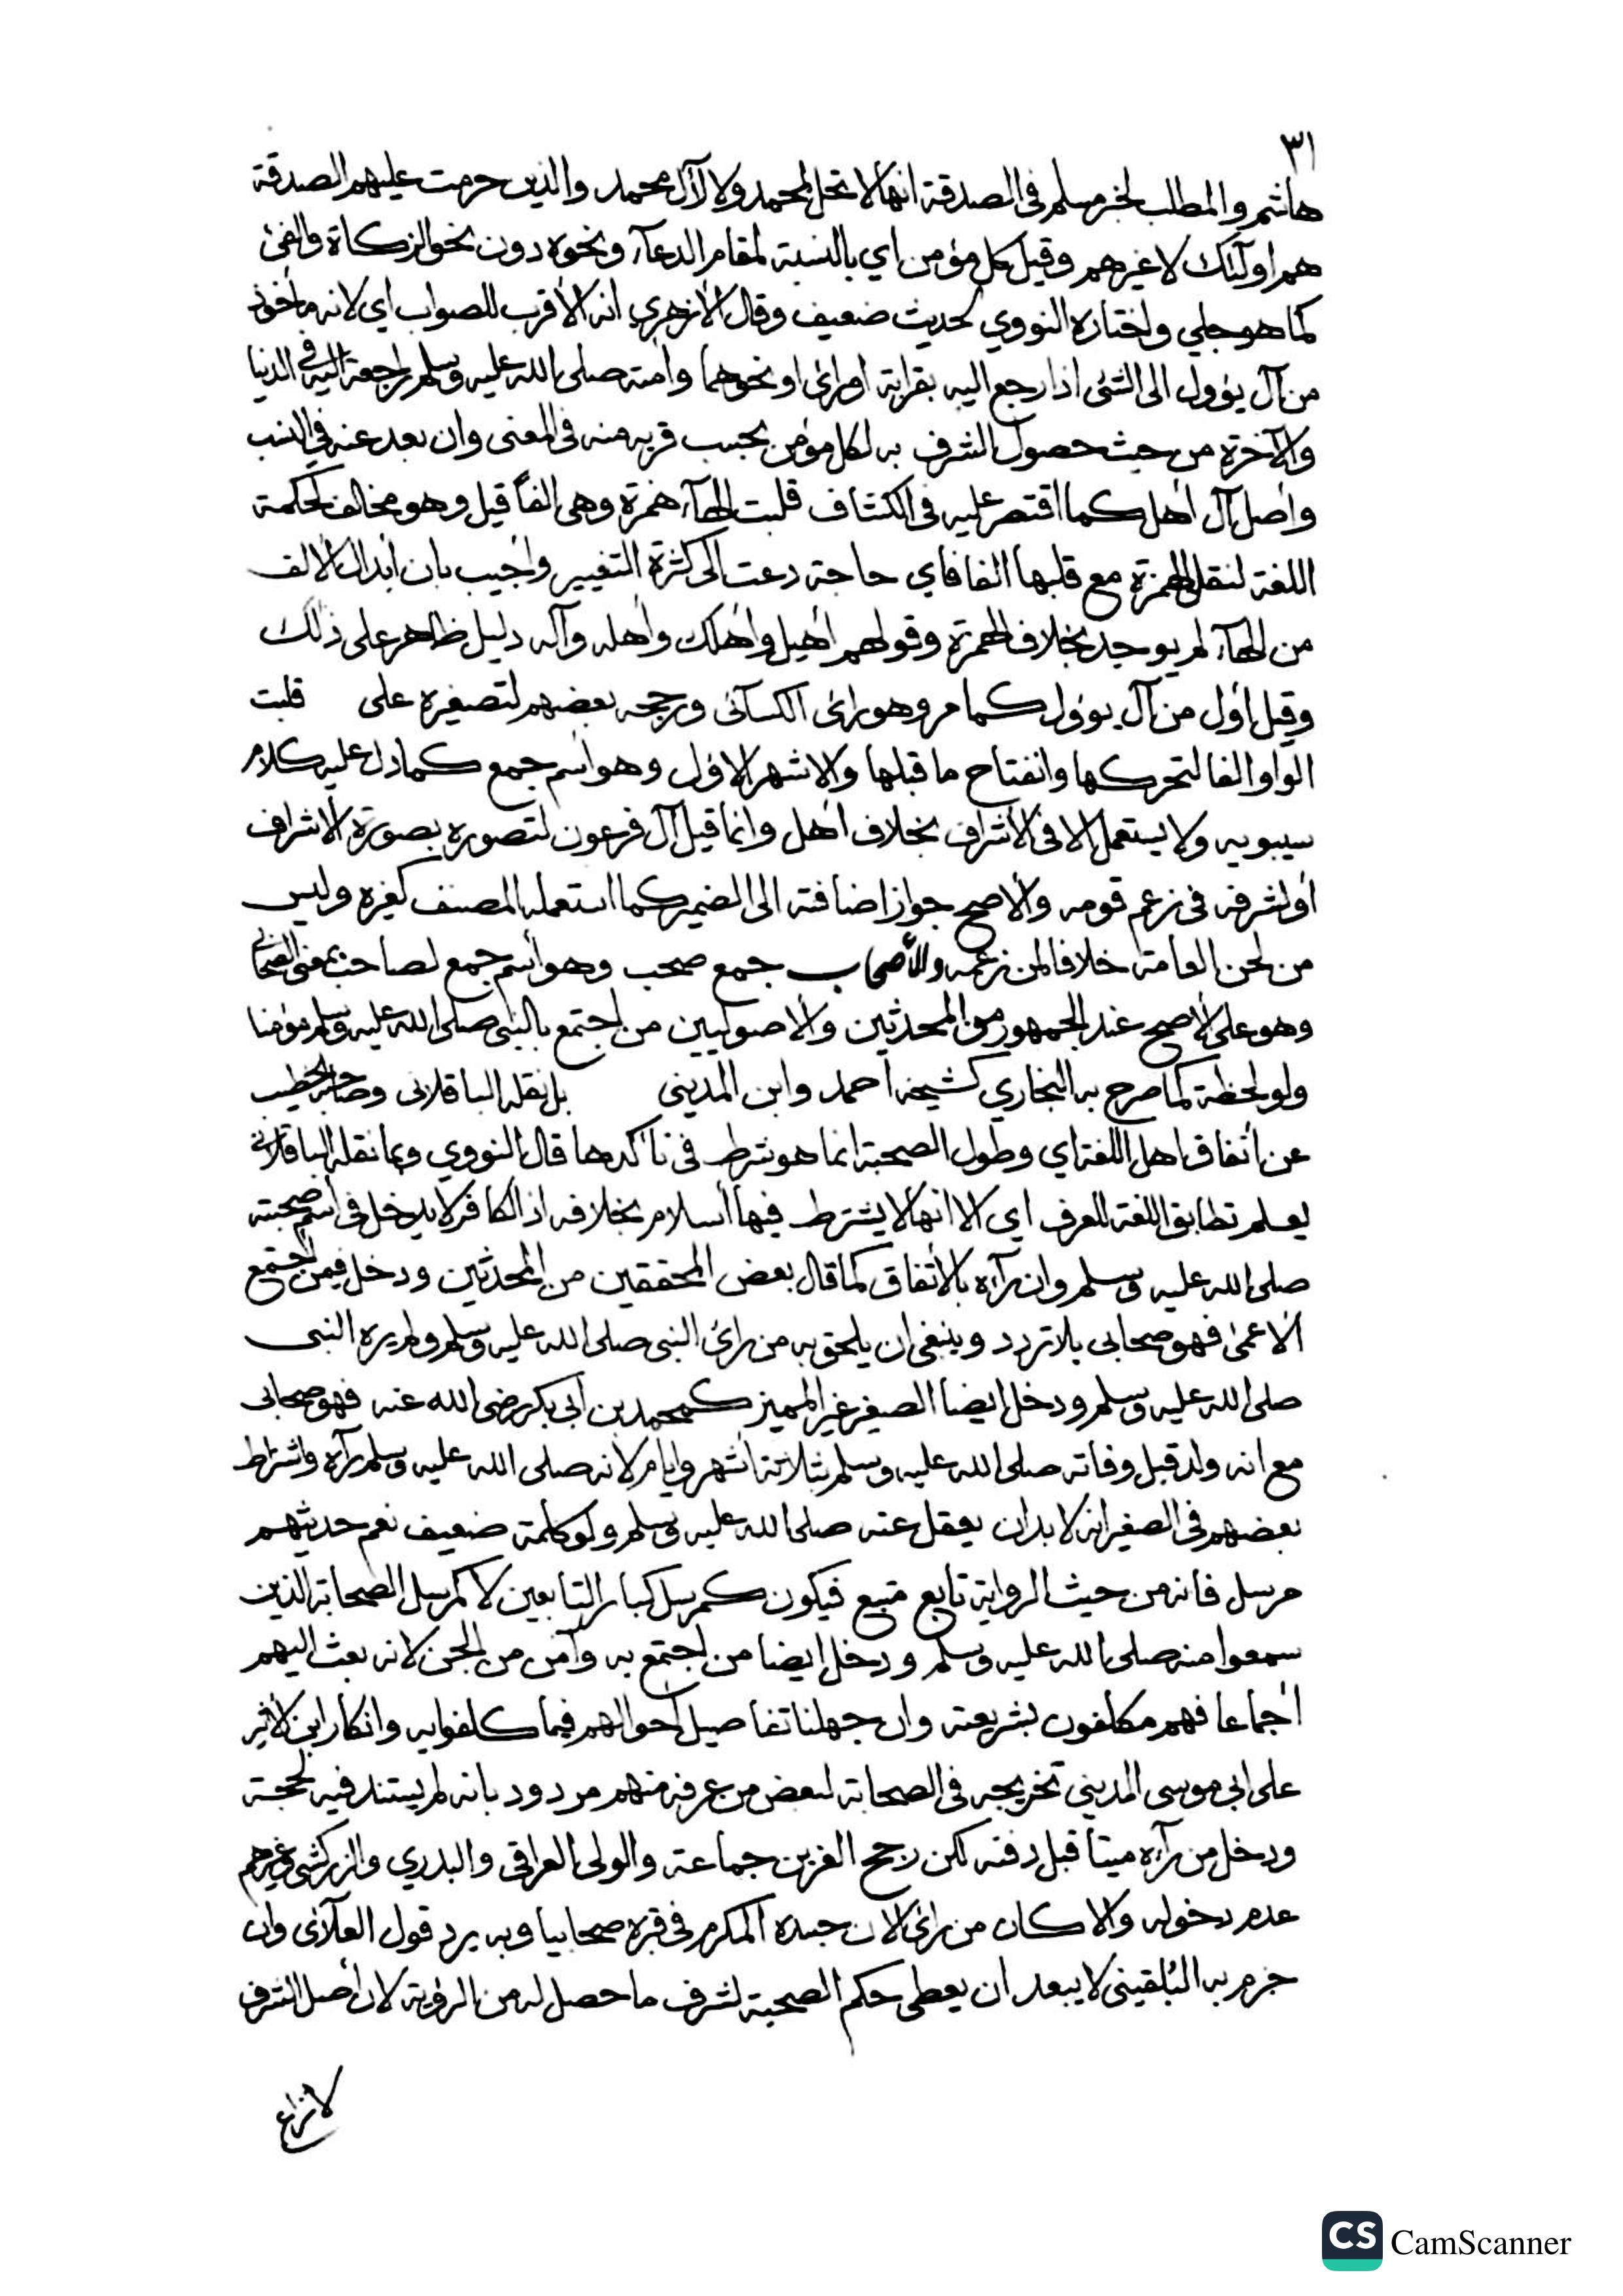 ٣١
هاشم والمطلب لخبر مسلم فى الصدقة انها لا تحل لمحمد ولا لآل محمد والذين حرمت عليهم الصدقة
هم اولئك لا غيرهم وقيل كل مؤمن اي بالنسبة لمقام الدعآء ونحوه دون نحو الزكاة والفئ
كما هو جلي واختاره النووي لحديث ضعيف وقال الأزهري انه الأقرب للصواب اى لانه مأخوذ
من آل يؤول الى الشئ اذا رجع اليه بقرابة او رائ او نحوهما وأمته صلى الله عليه وسلم راجعة اليه فى الدنيا
والآخرة من حيث حصول الشرف به لكل مؤمن بحسب قربه منه فى المعنى وان بعد عنه في النسب
وأصل آل أهل كما اقتصر عليه فى الكشاف قلبت الهآء همزة وهى الفاً قيل وهو مخالف لحكمة
اللغة لنقل الهمزة مع قلبها الفا فاي حاجة دعت الى كثرة التغيير وأجيب بان أبدال الألف
من الهآء لم يوجد بخلاف الهمزة وقولهم أهيل وأهلك وأهله وآله دليل ظاهر على ذلك
وقيل أول من آل يوول كما مر وهو رائ الكسآئى ورجحه بعضهم لتصغيره على قلبت
الواو الفا لتحركها وانفتاح ما قبلها والاشهر الاول وهو اسم جمع كما دل عليه كلام
سيبويه ولا يستعمل الا فى الأشراف بخلاف أهل وانما قيل آل فرعون لتصوره بصورة الاشراف
أو لشرفه فى زعم قومه والاصح جواز اضافته الى الضمير كما استعمله المصنف كغيره وليس
من لحن العامة خلافا لمن زعمه والأصحاب جمع صحب وهو أسم جمع لصاحب بمعنى الصحابى
وهو على الاصح عند الجمهور من المحدثين والأصوليين من اجتمع بالنبى صلى الله عليه وسلم مؤمنا
ولو لحظة كما صرح به البخاري كشيخه أحمد وابن المدينى بل نقله الباقلانى وصاحبه الخطيب
عن اتفاق اهل اللغة اي وطول الصحبة انما هو شرط فى تأكدها قال النووي وبما نقله الباقلانى
يعلم تطابق اللغة للعرف اي الا انها لا يشترط فيها أسلام بخلافه اذ الكافر لا يدخل فى اسم صحبته
صلى الله عليه وسلم وان رآه بالاتفاق كما قال بعض المحققين من المحدثين ودخل فيمن اجتمع
الأعمى فهو صحابى بلا تردد وينبغى ان يلحق به من رائ النبى صلى الله عليه وسلم ولم يره النبى
صلى الله عليه وسلم ودخل ايضا الصغير غير المميز كمحمد بن ابى بكر رضى الله عنه فهو صحابى
مع انه ولد قبل وفاته صلى الله عليه وسلم بثلاثة أشهر وايام لانه صلى الله عليه وسلم رآه واشتراط
بعضهم فى الصغير انه لا بد ان يعقل عنه صلى الله عليه وسلم ولو كلمة ضعيف نعم حديثهم
مرسل فانه من حيث الرواية تابع متبع فيكون كمرسل كبار التابعين لا كمرسل الصحابة الذين
سمعوا منه صلى الله عليه وسلم ودخل ايضا من اجتمع به وآمن من الجن لانه بعث اليهم
أجماعا فهم مكلفون بشريعته وان جهلنا تفاصيل أحوالهم فيما كلفوا به وانكار ابن الاثير
على ابى موسى المدينى تخريجه فى الصحابة لبعض من عرفه منهم مردود بانه لم يستند فيه لحجة
ودخل من رآه ميتا قبل دفنه لكن رجح العز بن جماعة والولى العراقى والبدري والزركشى وغيرهم
عدم دخوله والا كان من رائ الان جسده المكرم فى قبره صحابيا وبه يرد قول العلآئى وان
جزم به البُلقينى لا يبعد ان يعطى حكم الصحبة لشرف ما حصل له من الرؤية لان أصل الشرف
لا نزاع
CS CamScanner